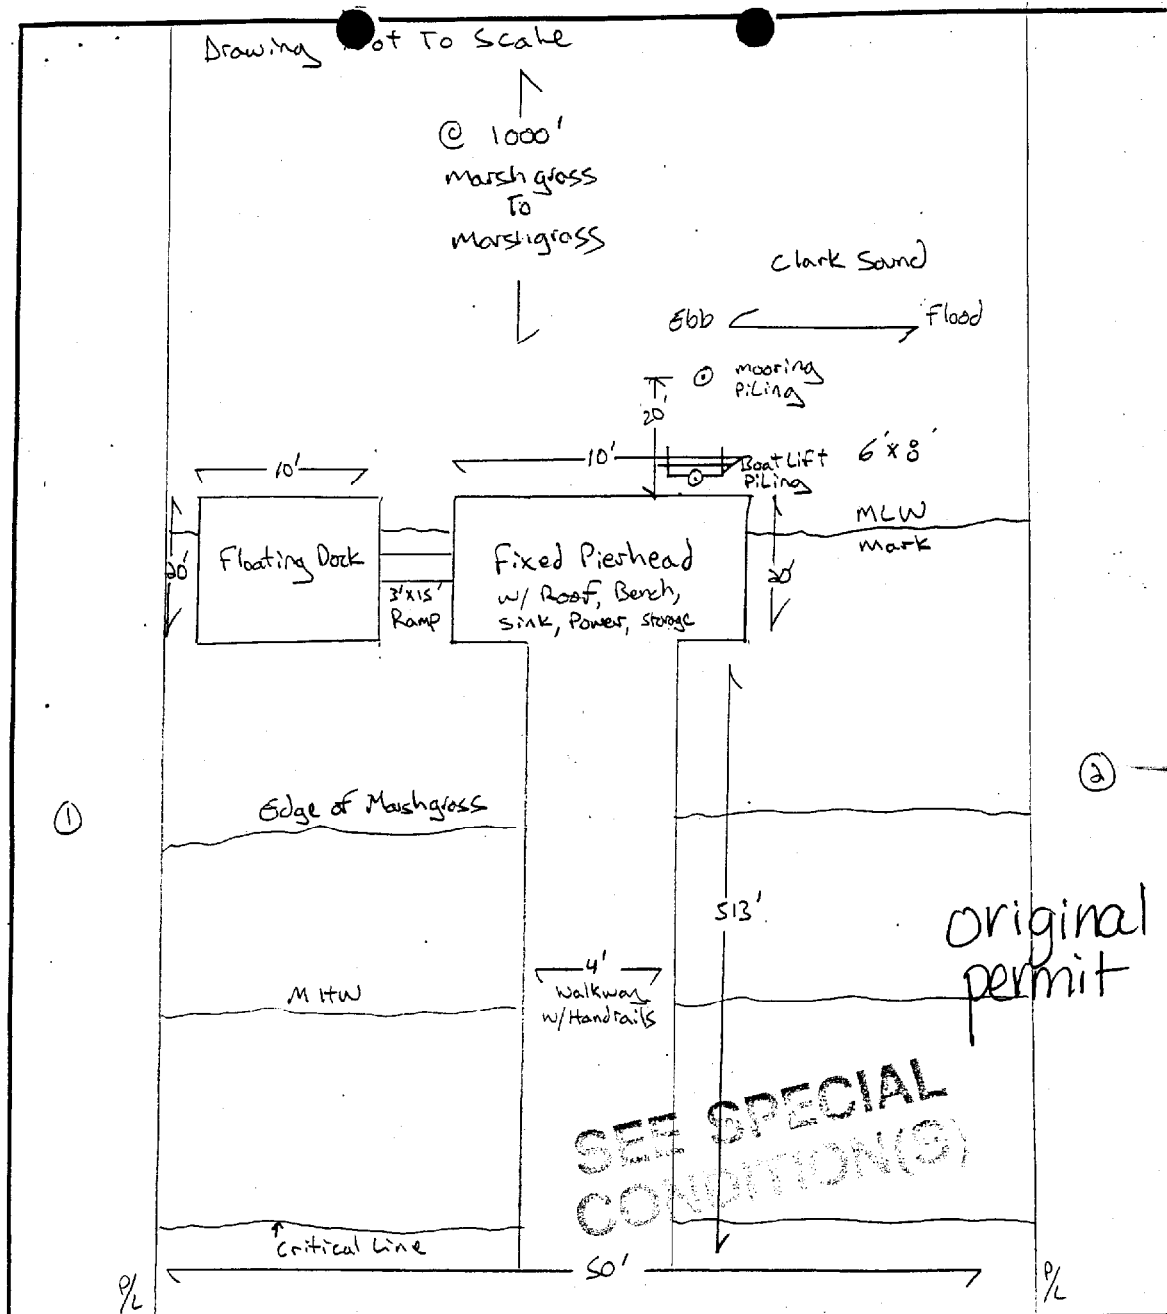 Drawing ot To Scale
@ 1000'
Marsh grass
To
Marshgrass
Clark Sound
Ebb
Flood
mooring
PiLing
20'
10'
10'
BoatLift
PiLing
6'x8'
MLW
Mark
20'
Floating Dock
3'x15'
Ramp
Fixed Pierhead
w/ Roof, Bench,
Sink, Power, Storage
20'
①
②
Edge of Marshgrass
513'
original
permit
4'
Walkway
w/Handrails
MHW
SEE SPECIAL
CONDITION(S)
Critical Line
50'
P/L
P/L